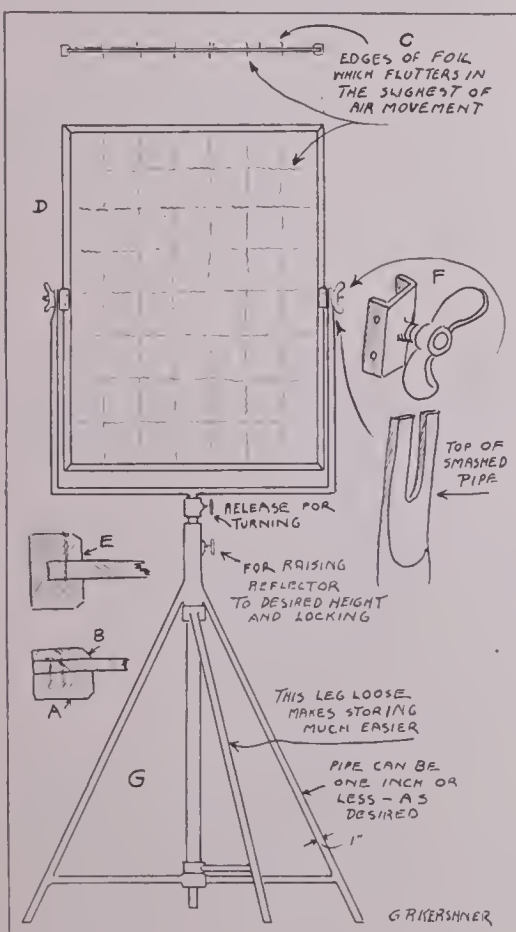 C
EDGES OF FOIL
WHICH FLUTTERS IN
THE SLIGHEST OF
AIR MOVEMENT
D
F
TOP OF
SMASHED
PIPE
RELEASE FOR
TURNING
E
FOR RAISING
REFLECTOR
TO DESIRED HEIGHT
AND LOCKING
B
A
THIS LEG LOOSE
MAKES STORING
MUCH EASIER
G
PIPE CAN BE
ONE INCH OR
LESS - AS
DESIRED
1"
G P KERSHNER